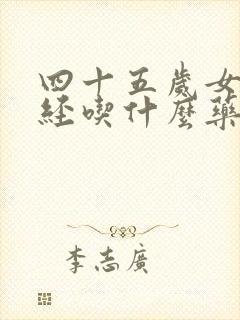 四十五歲女
經喫什麼藥
李志廣